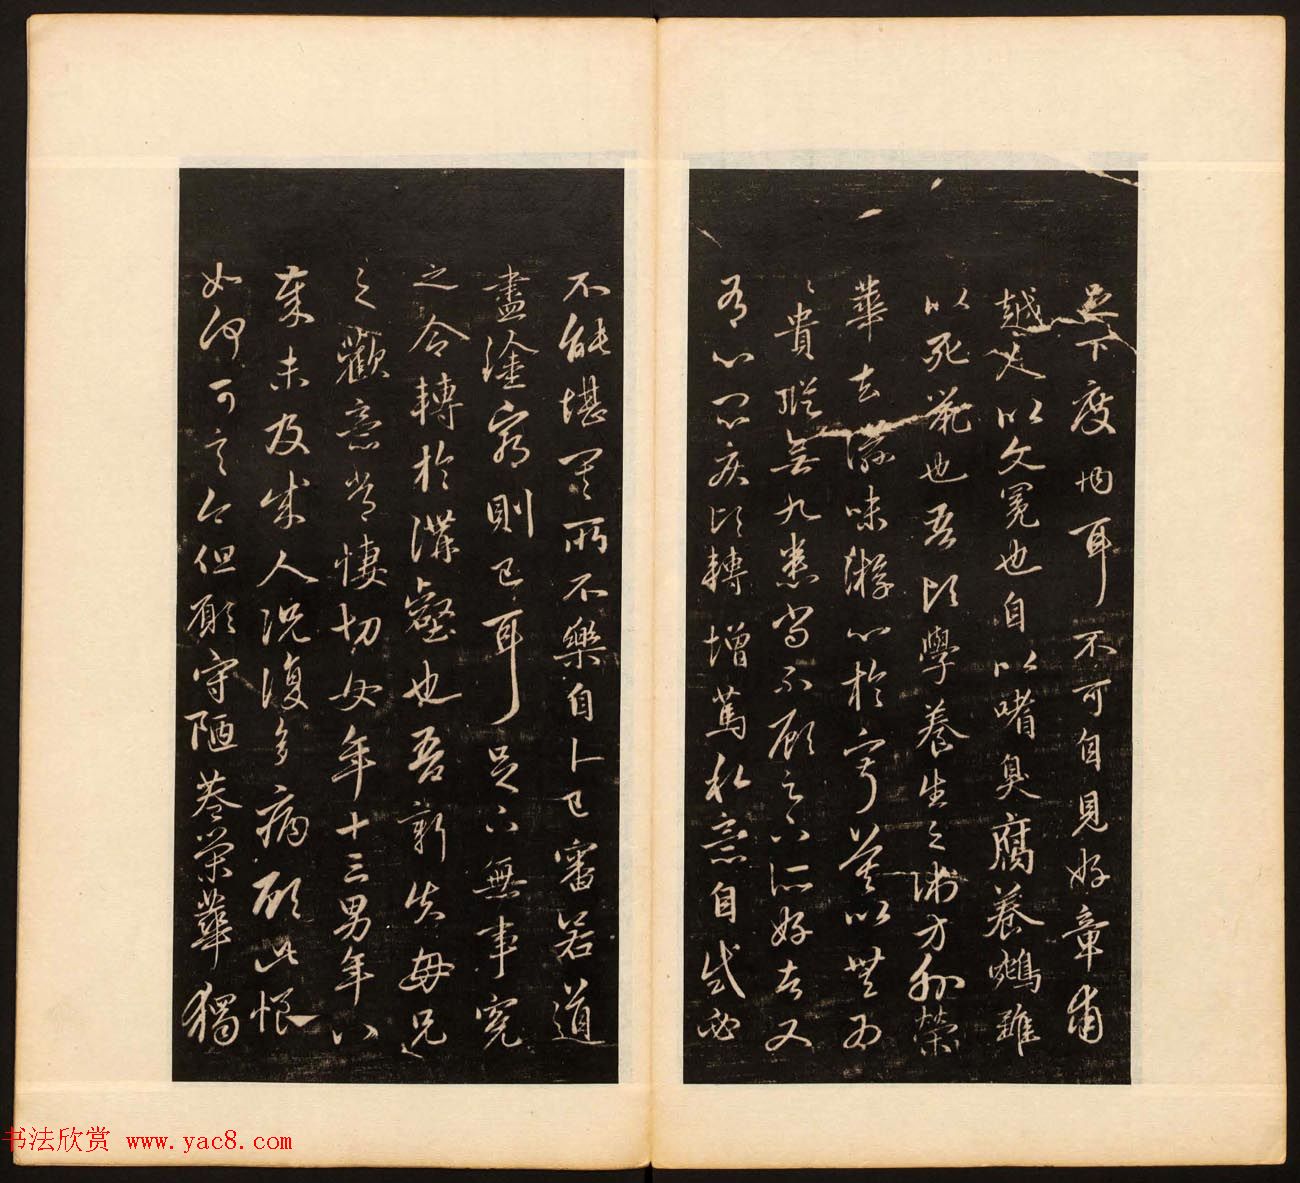 足下度内耳不可自見好章甫
越人以文冕也自以嗜臭腐養鵷雛
以死鼠也吾頃學養生之術方外榮
華去滋味游心於寂莫以無為
〻貴縱無九患尚不顧足下所好者又
有心悶疾頃轉增篤私意自試必
不能堪其所不樂自卜已審若道
盡塗窮則已耳足下無事冤
之令轉於溝壑也吾新失母兄
之歡意常悽切女年十三男年八
歲未及成人況復多病顧此恨
如何可言今但願守陋巷榮華獨
书法欣赏 www.yac8.com